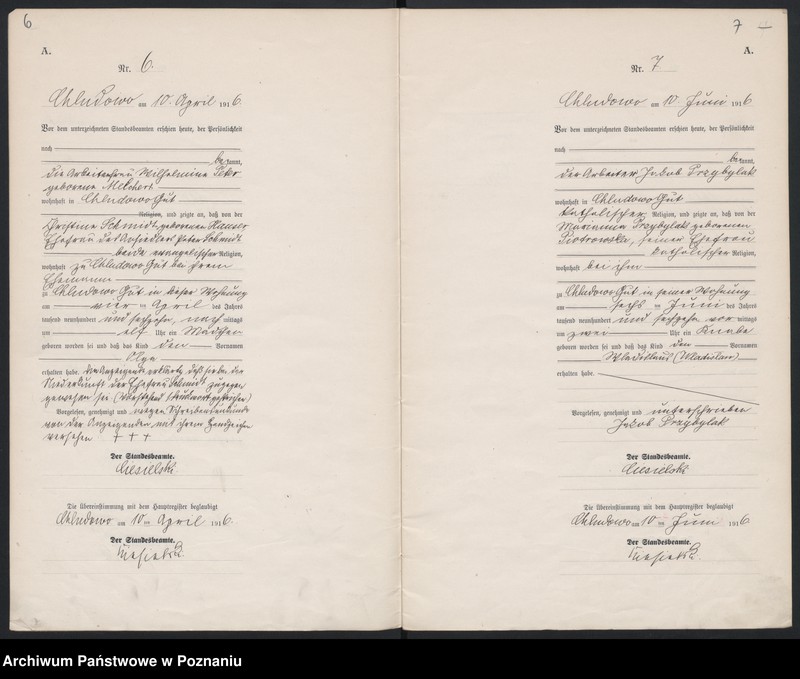 6
A.
Nr. 6.
Chludowo am 10. April 1916.
Vor dem unterzeichneten Standesbeamten erschien heute, der Persönlichkeit
nach
bekannt,
die Arbeiterfrau Wilhelmine
geborene Melchert
wohnhaft in Chludowo Gut
Religion, und zeigte an, daß von der
Christine Schmidt geborenen
Ehefrau des Ansiedlers Peter Schmidt
beide evangelischer Religion,
wohnhaft zu Chludowo Gut bei ihrem
Ehemann
zu Chludowo Gut in dieser Wohnung
am vier ten April des Jahres
tausend neunhundert und sechzehn, nachmittags
um elf Uhr ein Mädchen
geboren worden sei und daß das Kind den Vornamen
Olga
erhalten habe. Die Anzeigende erklärte, daß sie bei der
Niederkunft der Ehefrau Schmidt zugegen
gewesen sei (Vorstehend 1 Druckwort gestrichen)
Vorgelesen, genehmigt und wegen Schreibensunkunde
von der Anzeigenden mit ihrem Handzeichen
versehen + + +
Der Standesbeamte.
Ciesielski.
Die Übereinstimmung mit dem Hauptregister beglaubigt
Chludowo am 10 ten April 1916.
Der Standesbeamte.
Ciesielski.
7
A.
Nr. 7
Chludowo am 10 Juni 1916
Vor dem unterzeichneten Standesbeamten erschien heute, der Persönlichkeit
nach
bekannt,
der Arbeiter Jakob Przybylak
wohnhaft in Chludowo Gut
katholischer Religion, und zeigte an, daß von der
Marianna Przybylak geborenen
Piotrowska, seiner Ehefrau
katholischer Religion,
wohnhaft bei ihm
zu Chludowo Gut in seiner Wohnung
am sechs ten Juni des Jahres
tausend neunhundert und sechzehn vormittags
um zwei Uhr ein Knabe
geboren worden sei und daß das Kind den Vornamen
Wladislaus (Wladislaw)
erhalten habe.
Vorgelesen, genehmigt und unterschrieben
Jakob Przybylak
Der Standesbeamte.
Ciesielski
Die Übereinstimmung mit dem Hauptregister beglaubigt
Chludowo am 10 ten Juni 1916
Der Standesbeamte.
Ciesielski.
Archiwum Państwowe w Poznaniu